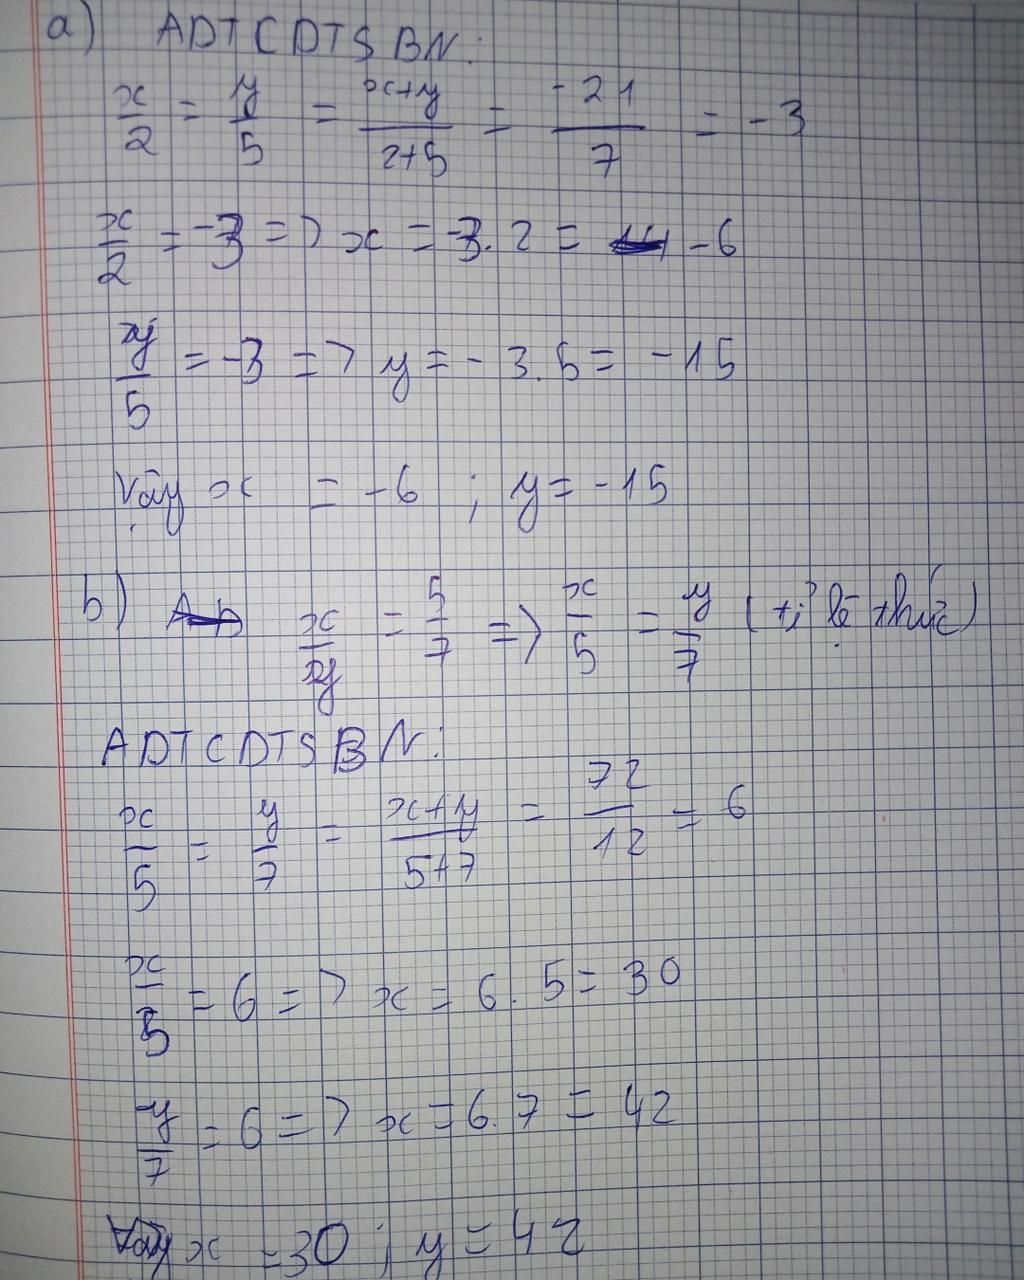 a) ADTCDTSBN:
x/2 = y/5 = x+y/2+5 = -21/7 = -3
x/2 = -3 => x = -3.2 = -6
y/5 = -3 => y = -3.5 = -15
Vậy x = -6 ; y = -15
b) x/y = 5/7 => x/5 = y/7 (tỉ lệ thức)
ADTCDTSBN:
x/5 = y/7 = x+y/5+7 = 72/12 = 6
x/5 = 6 => x = 6.5 = 30
y/7 = 6 => x = 6.7 = 42
Vậy x = 30 ; y = 42